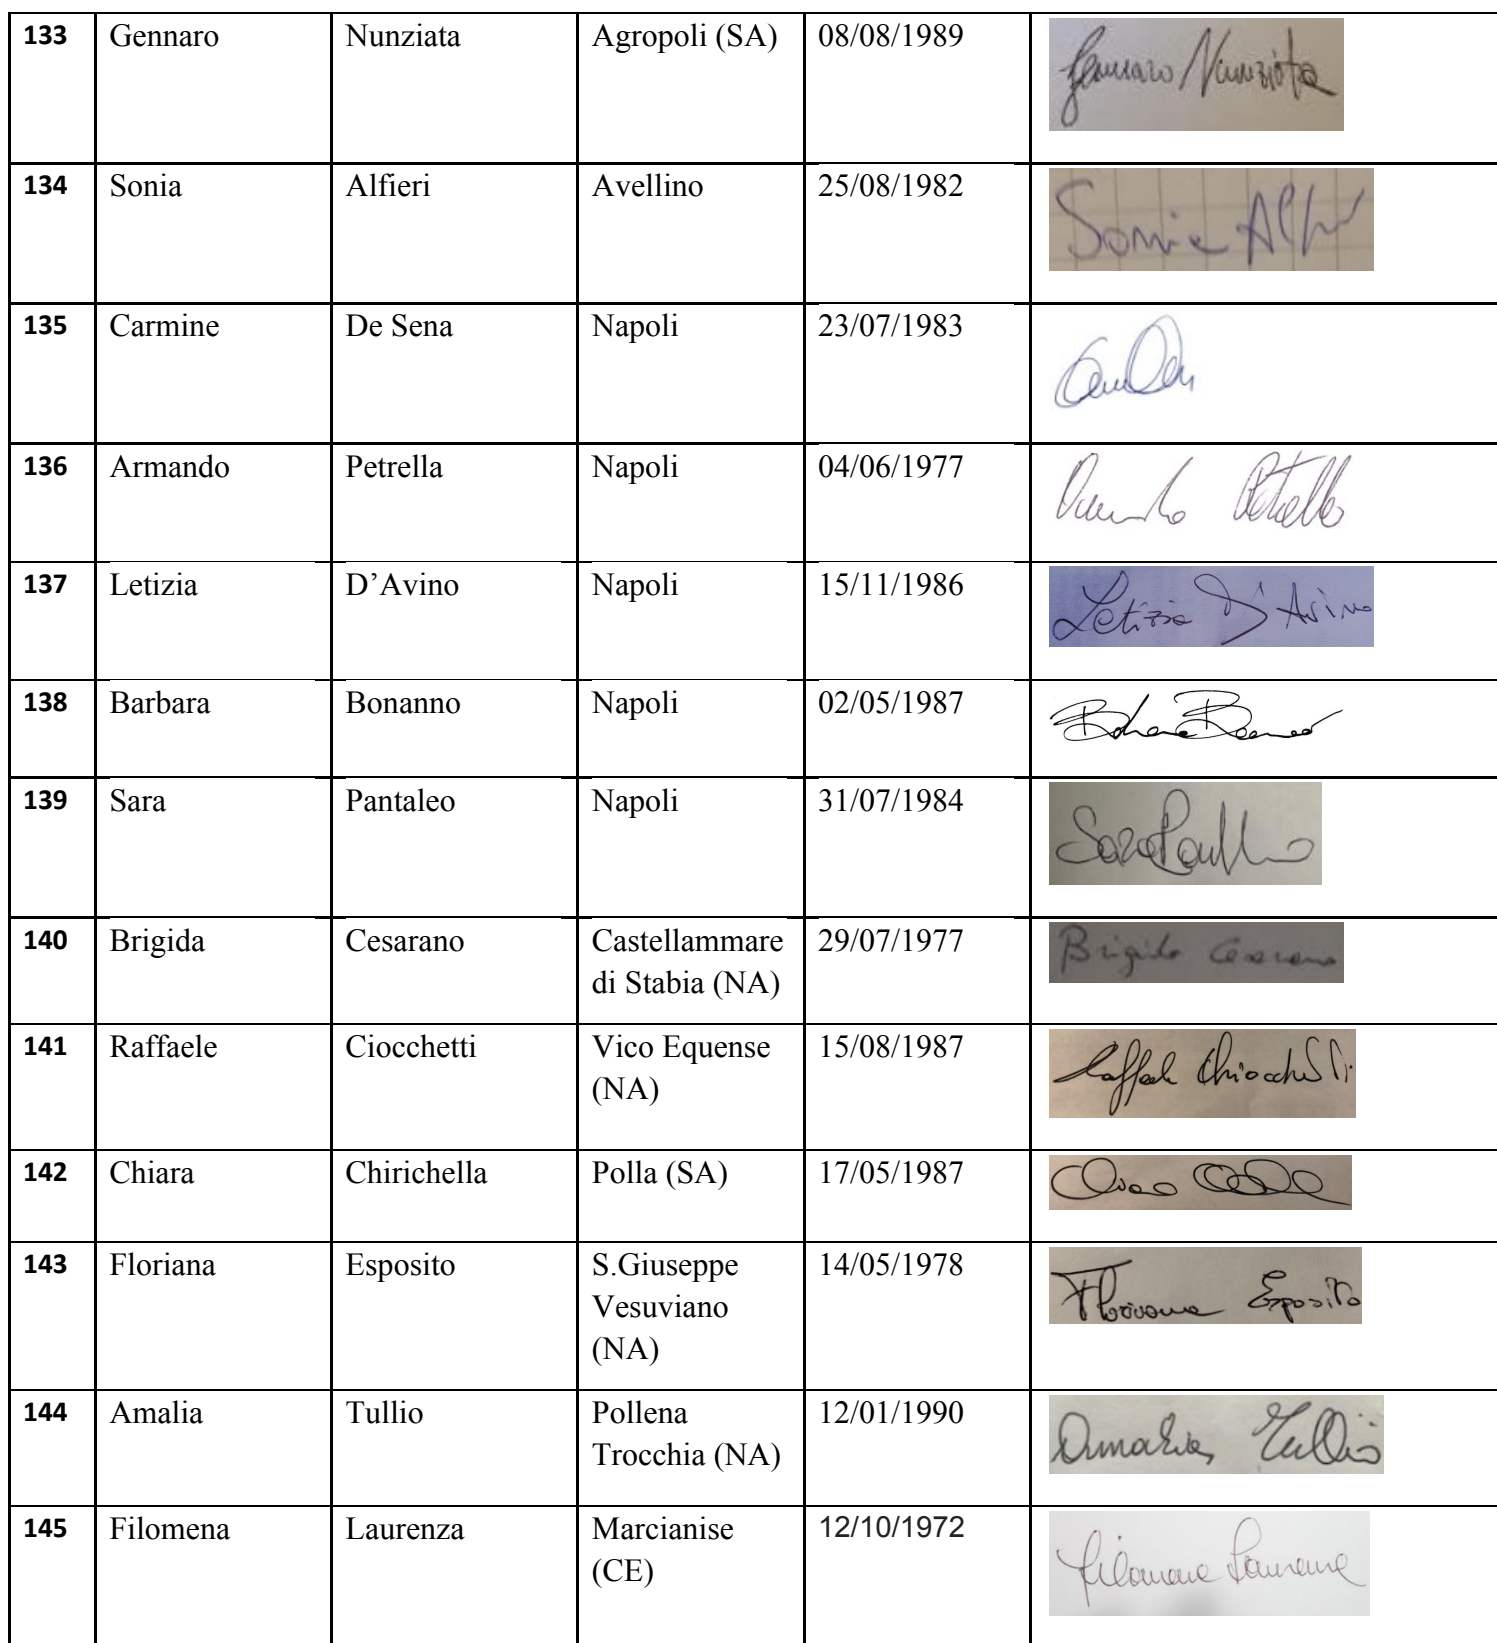 133 Gennaro Nunziata Agropoli (SA) 08/08/1989 Gennaro Nunziata
134 Sonia Alfieri Avellino 25/08/1982 Sonia
135 Carmine De Sena Napoli 23/07/1983
136 Armando Petrella Napoli 04/06/1977 Armando Petrella
137 Letizia D’Avino Napoli 15/11/1986 Letizia D'Avino
138 Barbara Bonanno Napoli 02/05/1987 Barbara Bonanno
139 Sara Pantaleo Napoli 31/07/1984 Sara
140 Brigida Cesarano Castellammare 29/07/1977 Brigida Cesarano
di Stabia (NA)
141 Raffaele Ciocchetti Vico Equense 15/08/1987 Raffaele Chiocchetti
(NA)
142 Chiara Chirichella Polla (SA) 17/05/1987 Chiara
143 Floriana Esposito S.Giuseppe 14/05/1978 Floriana Esposito
Vesuviano
(NA)
144 Amalia Tullio Pollena 12/01/1990 Amalia Tullio
Trocchia (NA)
145 Filomena Laurenza Marcianise 12/10/1972 Filomena Laurenza
(CE)